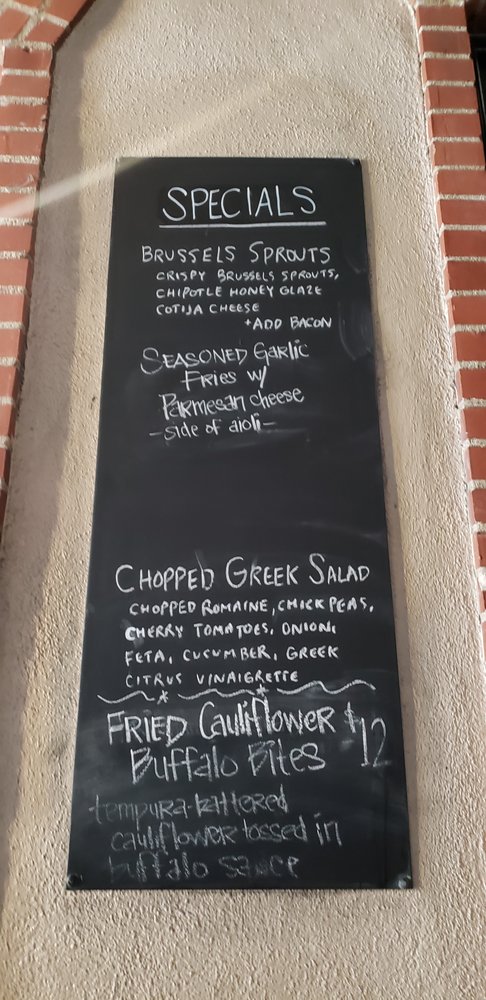 SPECIALS
BRUSSELS SPROUTS
CRISPY BRUSSELS SPROUTS,
CHIPOTLE HONEY GLAZE
COTIJA CHEESE
+ADD BACON
SEASONED GARLIC
FRIES W/
PARMESAN CHEESE
-SIDE OF aioli-
CHOPPED GREEK SALAD
CHOPPED ROMAINE, CHICK PEAS,
CHERRY TOMATOES, ONION,
FETA, CUCUMBER, GREEK
CITRUS VINAIGRETTE
FRIED Cauliflower $12
Buffalo Bites
tempura-battered
cauliflower tossed in
buffalo sauce